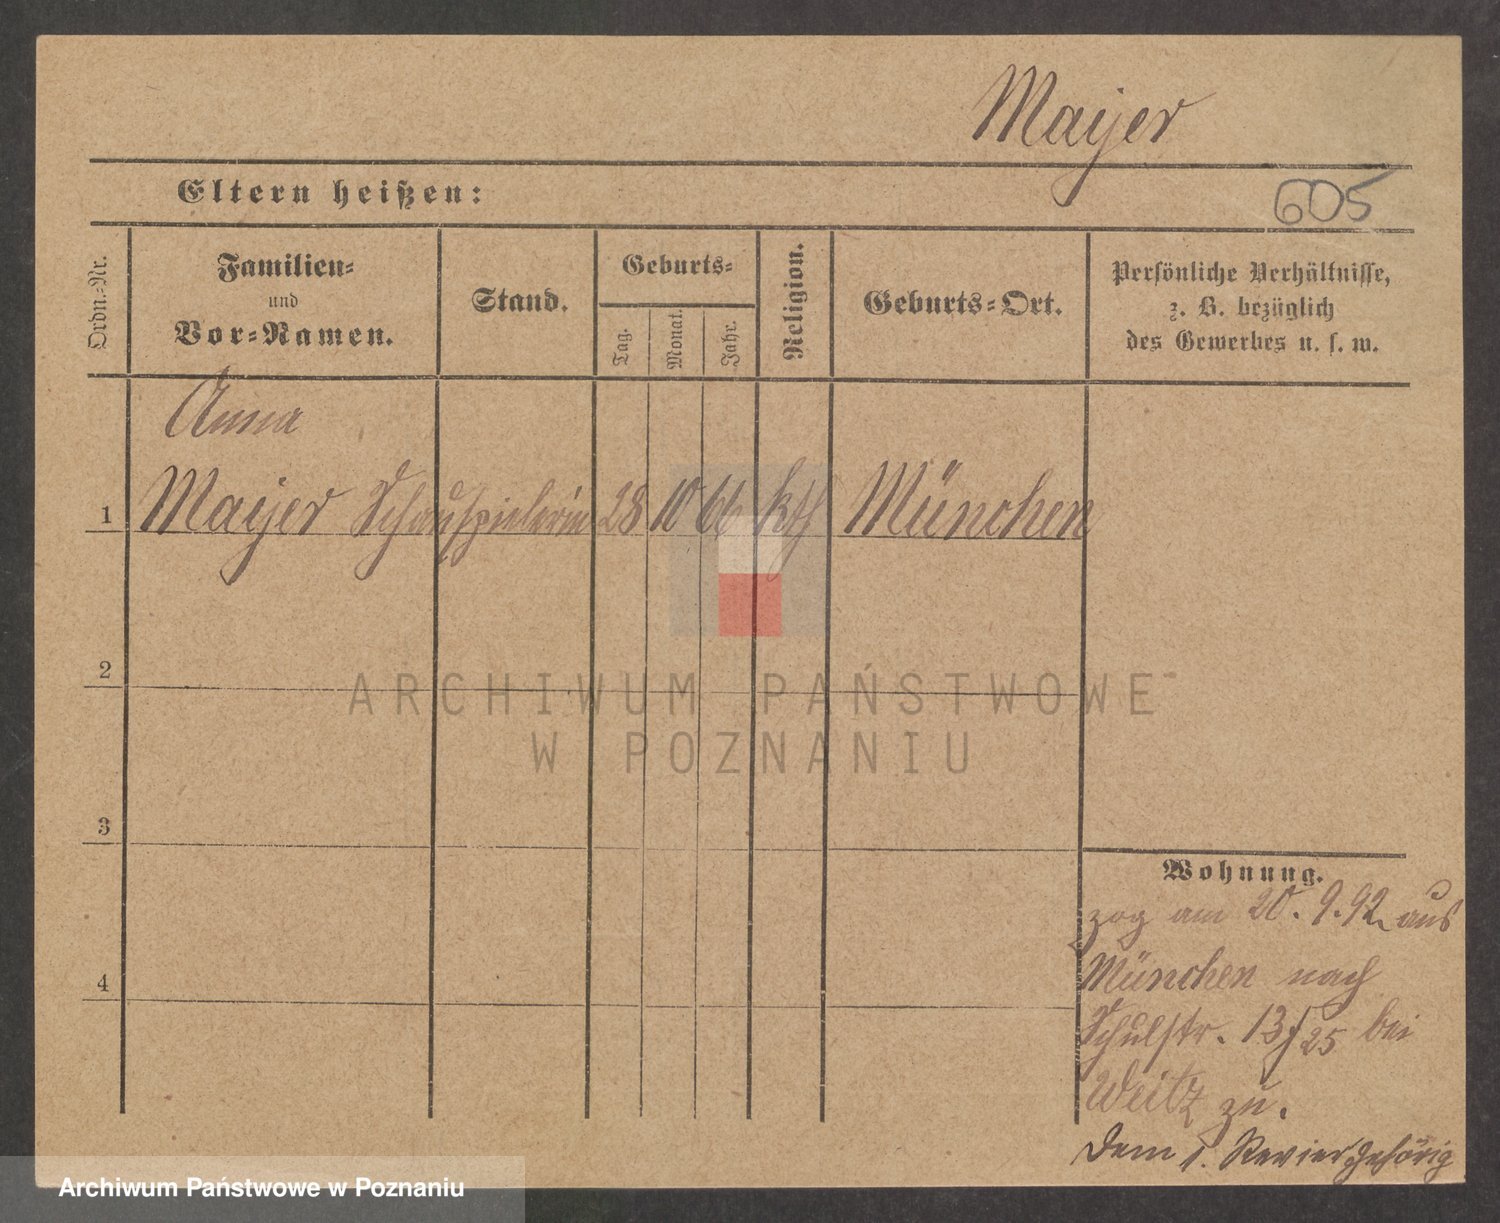 Maijer
Eltern heißen:
605
Ordn.-Nr.
Familien-
und
Vor-Namen.
Stand.
Geburts-
Tag.
Monat.
Jahr.
Religion.
Geburts-Ort.
Persönliche Verhältnisse,
z. B. bezüglich
des Gewerbes u. s. w.
Anna
1 Maijer Schauspielerin 28 10 66 kth München
2
ARCHIWUM PAŃSTWOWE
W POZNANIU
3
Wohnung.
zog am 20.9.92 aus
4
München nach
Schulstr. 13/25 bei
Weitz zu.
Dem 1. Revier gehörig
Archiwum Państwowe w Poznaniu